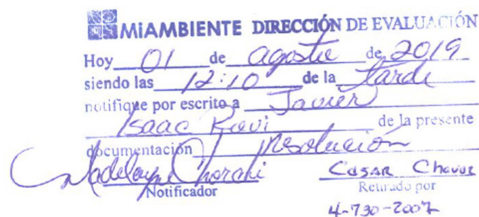 MiAMBIENTE DIRECCIÓN DE EVALUACIÓN
Hoy 01 de agosto de 2019
siendo las 12:10 de la tarde
notifique por escrito a Javier
Isaac de la presente
documentación resolución
Notificador
Cesar Chavez
Retirado por
4-730-2007